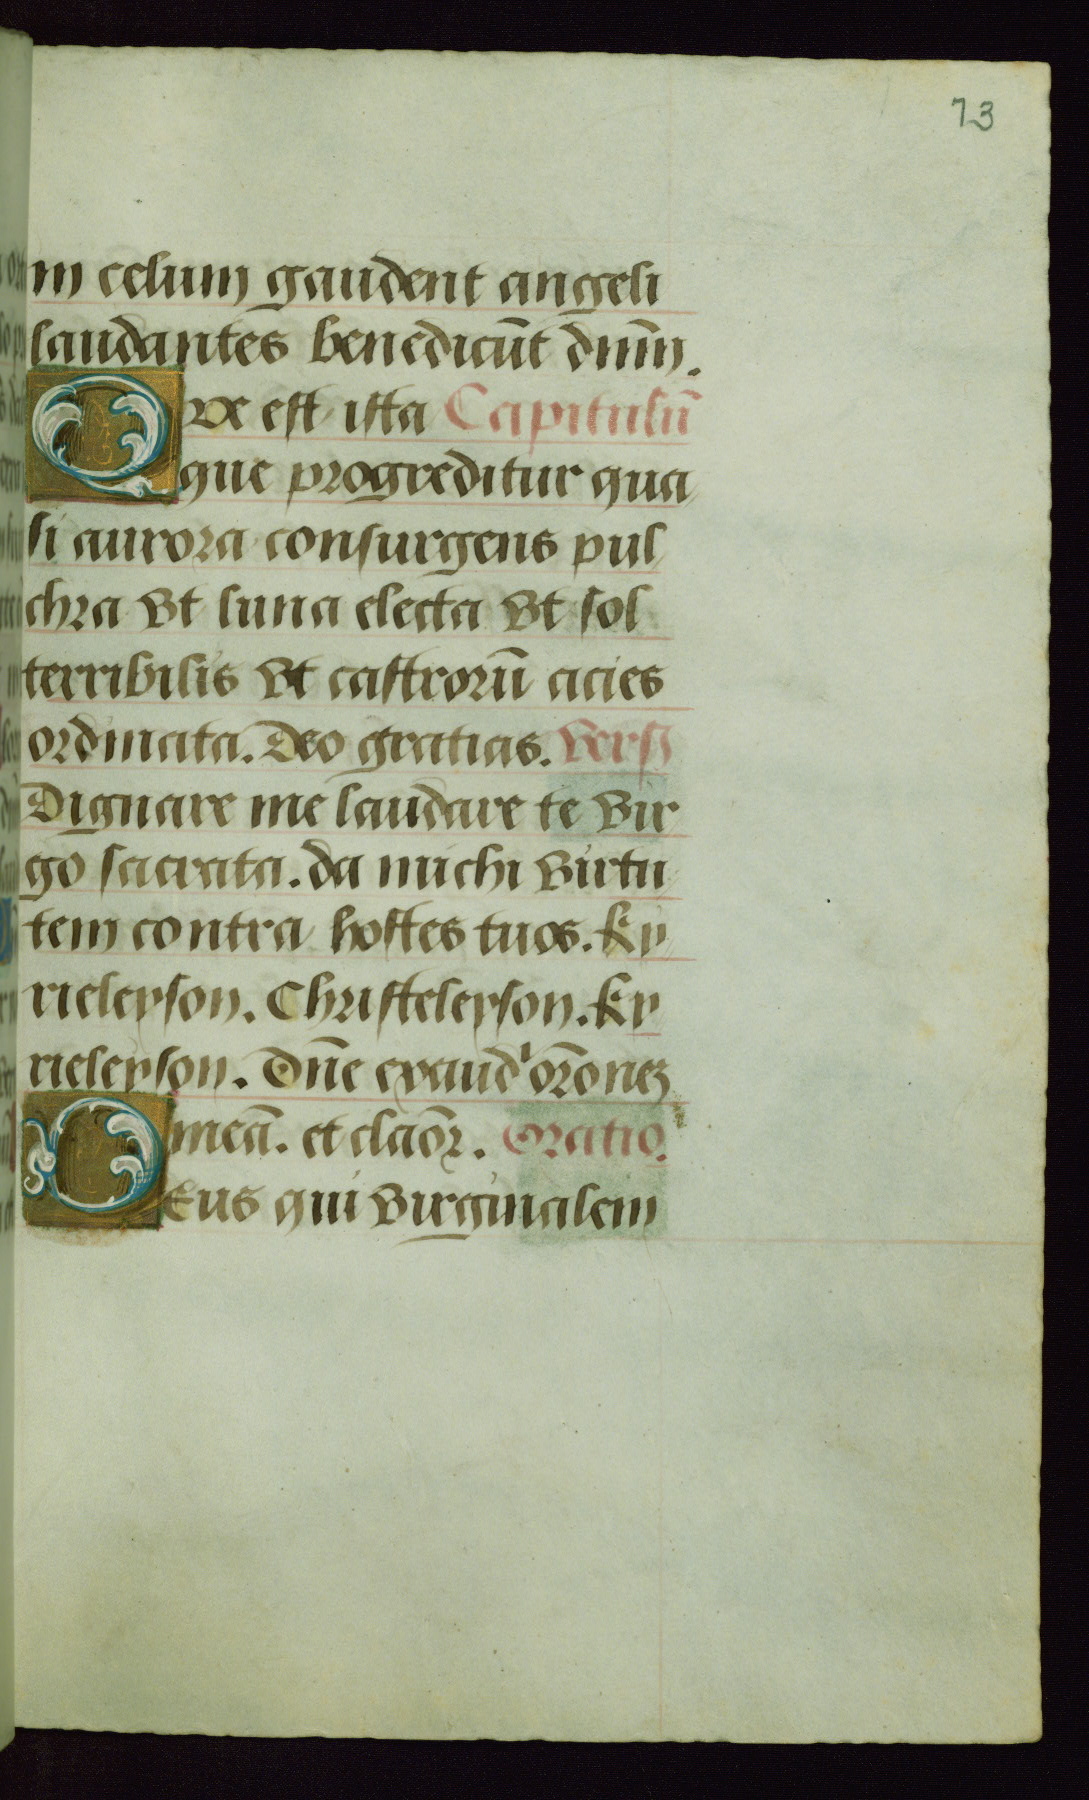 73
in celum gaudent angeli
laudantes benedicūt dnm̄.
Qve est ista Capitulū
que progreditur qua
si aurora consurgens pul
chra vt luna electa vt sol
terribilis vt castrorū acies
ordinata. Deo gratias. vers
Dignare me laudare te vir
go sacrata. da michi virtu
tem contra hostes tuos. ky
rieleyson. Christeleyson. ky
rieleyson. Dn̄e exaud' or̄onez
meā. et claōr. Oratio.
DEus qui virginalem